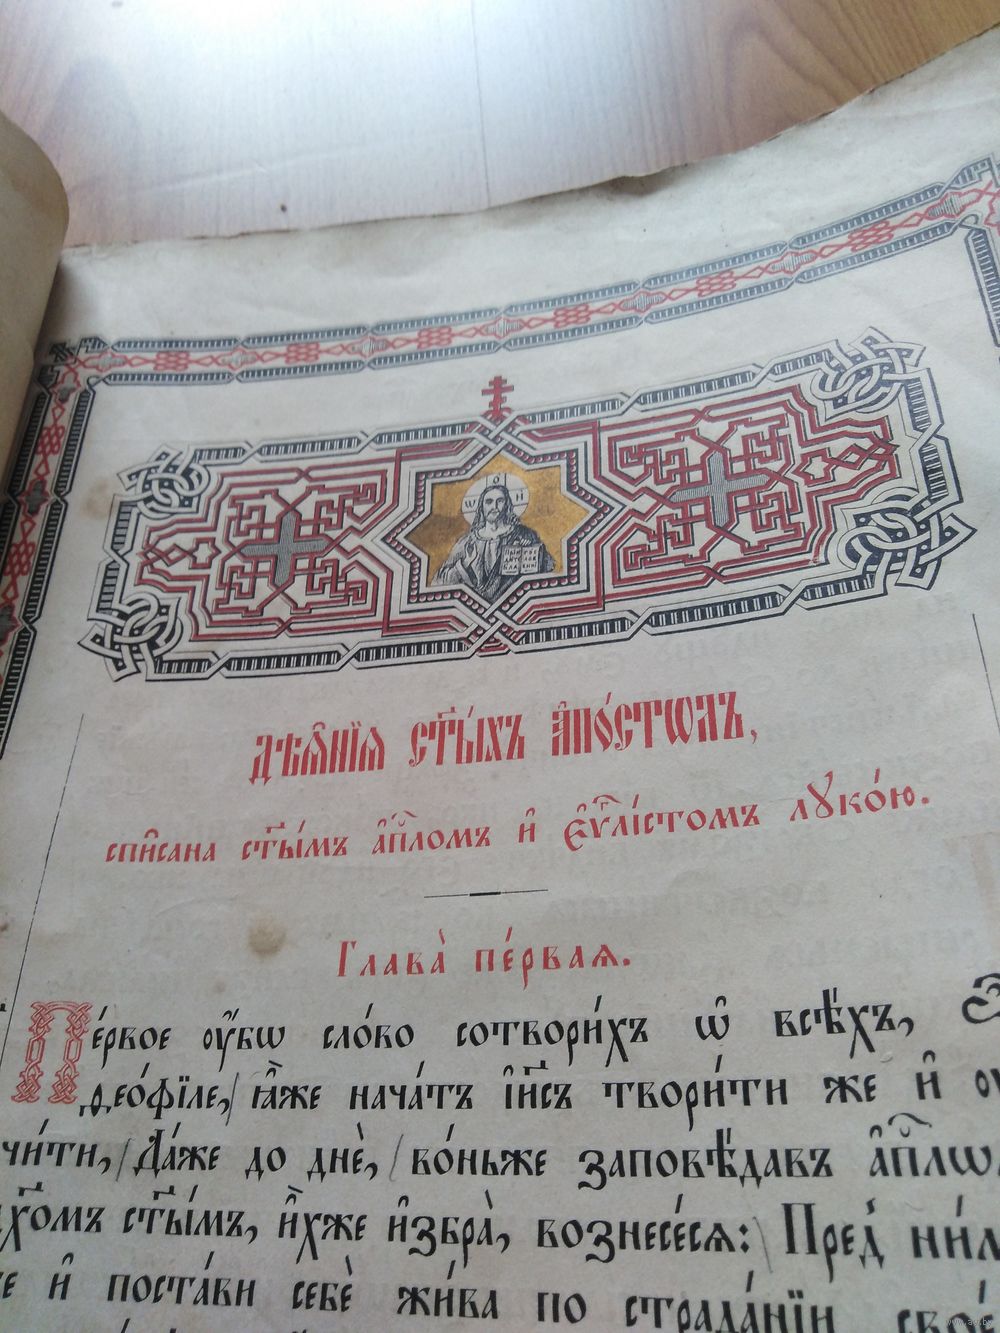 ѿ О Н
Дѣѧ҆нїѧ ст҃ы́хъ а҆по́стѡлъ,
спи̑сана ст҃ы́мъ а҆пⷭ҇ломъ и҆ є҆ѵⷢ҇лі́стомъ лꙋко́ю.
Глава̀ пе́рваѧ.
Пе́рвое ᲂу҆́бѡ сло́во сотвори́хъ ѡ҆ всѣ́хъ,
ѳео́фїле, ꙗ҆̀же нача́тъ і҆и҃съ твори́ти же и҆ ᲂу҆
чи́ти, Да́же до днѐ, во́ньже заповѣ́давъ а҆пⷭ҇лѡ
дх҃омъ ст҃ы́мъ, и҆̀хже и҆збра̀, вознесе́сѧ: Пред̾ ни́м
же и҆ поста́ви себѐ жи́ва по страда́нїи свое́
www.ay.by